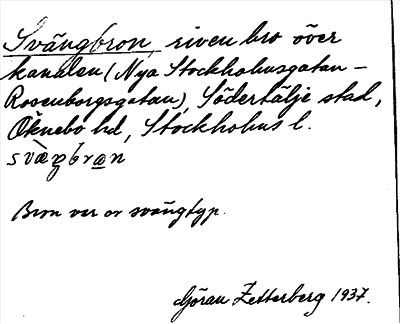 Svängbron, riven bro över
kanalen (Nya Stockholmsgatan –
Rosenborgsgatan), Södertälje stad,
Öknebo hd, Stockholms l.
svæŋbrωn
Bron var av svängtyp.
Göran Zetterberg 1937.